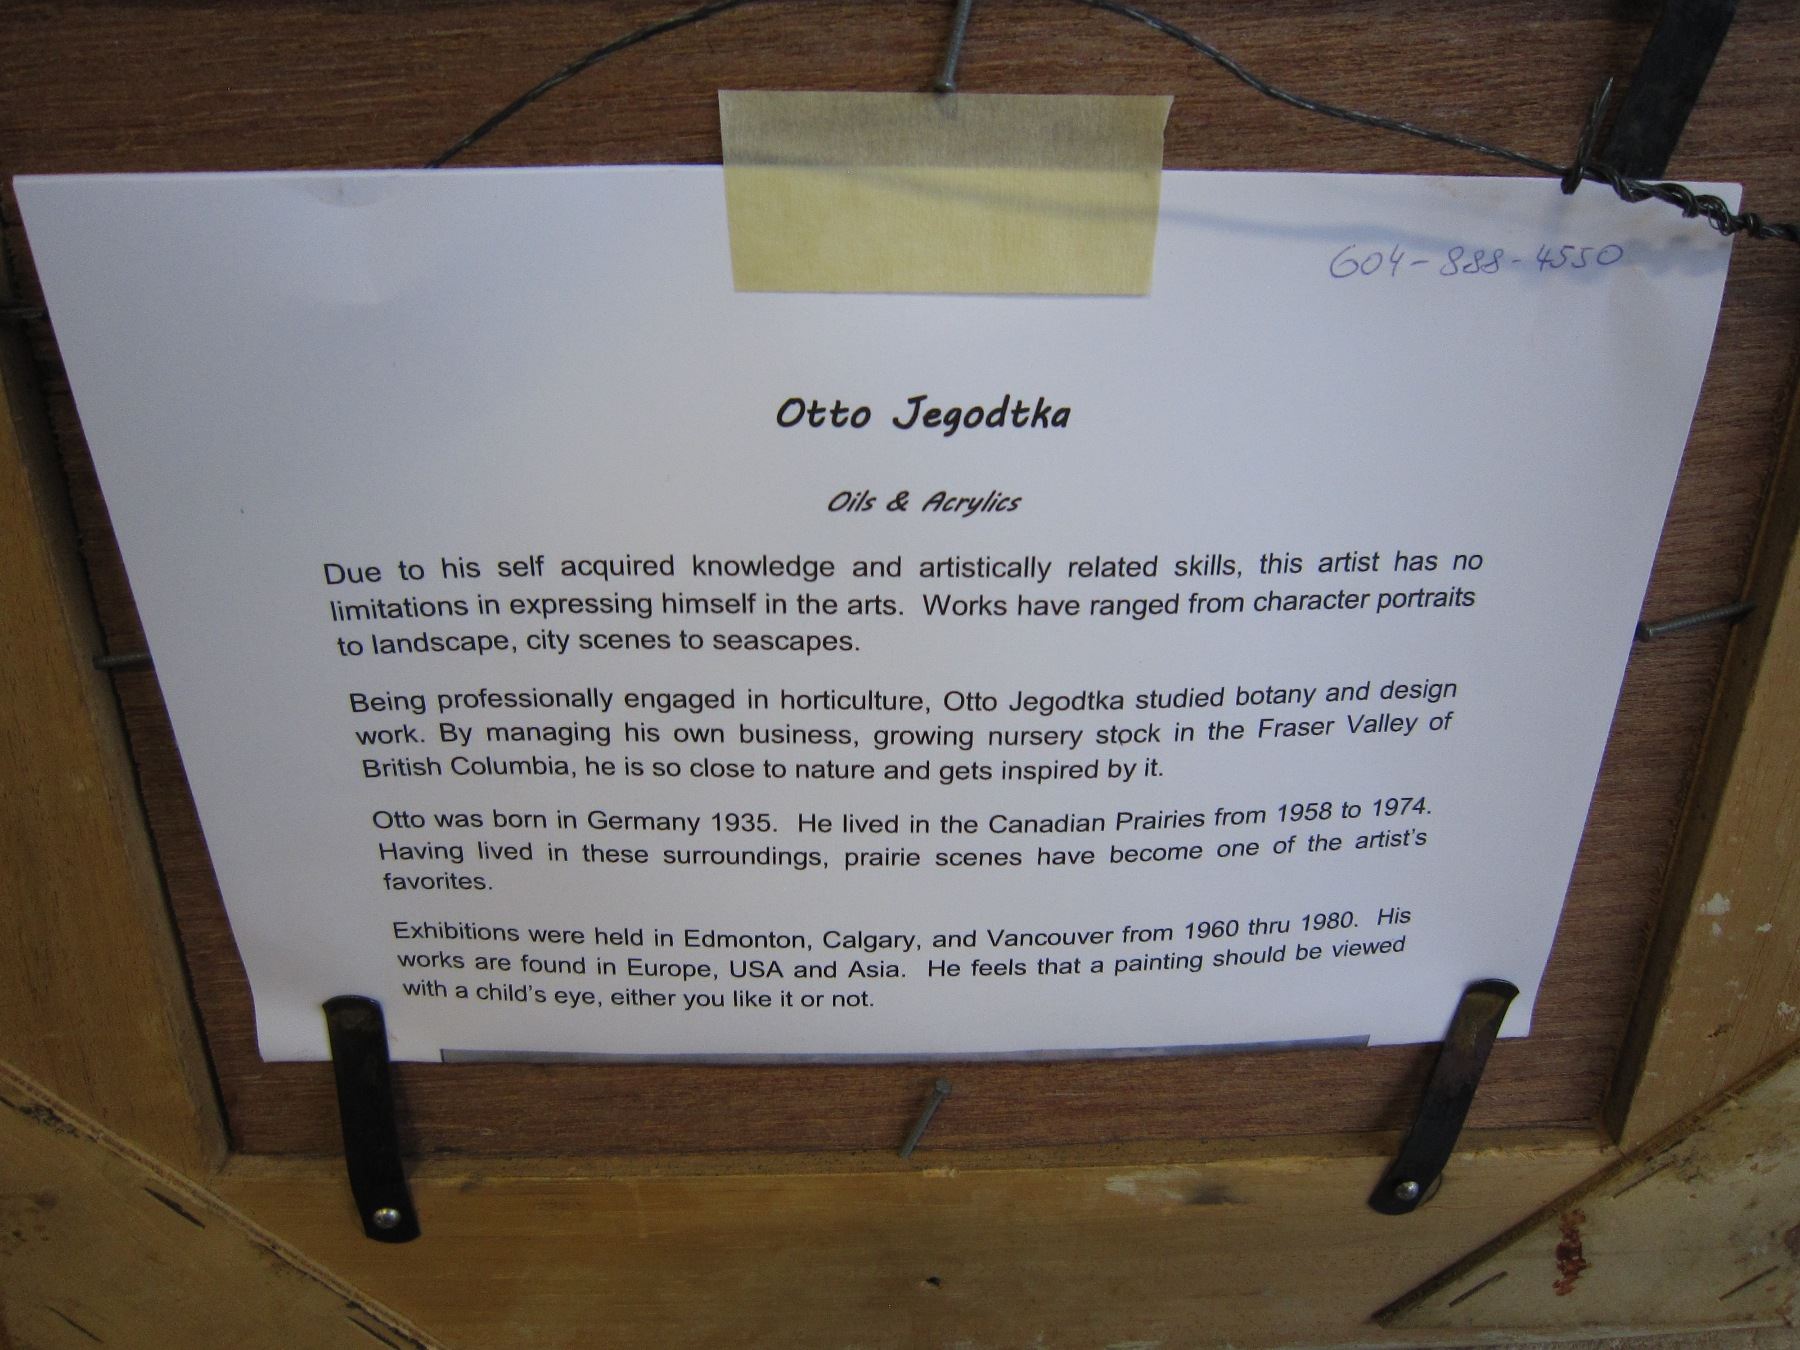 604-888-4550
Otto Jegodtka
Oils & Acrylics
Due to his self acquired knowledge and artistically related skills, this artist has no
limitations in expressing himself in the arts. Works have ranged from character portraits
to landscape, city scenes to seascapes.
Being professionally engaged in horticulture, Otto Jegodtka studied botany and design
work. By managing his own business, growing nursery stock in the Fraser Valley of
British Columbia, he is so close to nature and gets inspired by it.
Otto was born in Germany 1935. He lived in the Canadian Prairies from 1958 to 1974.
Having lived in these surroundings, prairie scenes have become one of the artist's
favorites.
Exhibitions were held in Edmonton, Calgary, and Vancouver from 1960 thru 1980. His
works are found in Europe, USA and Asia. He feels that a painting should be viewed
with a child's eye, either you like it or not.